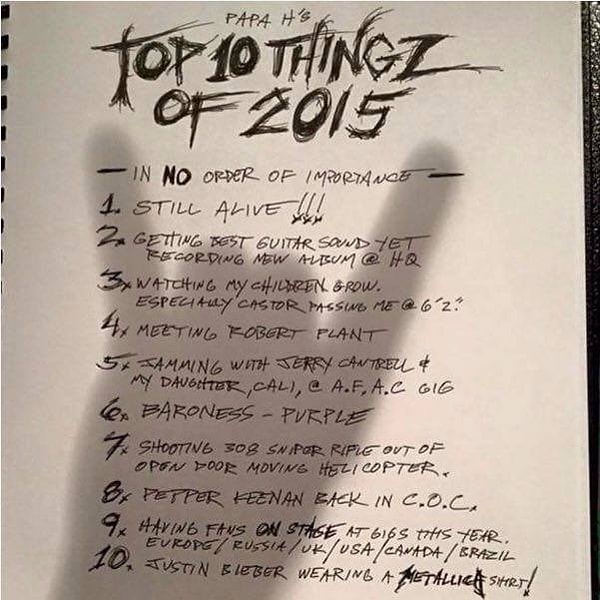 PAPA H'S
TOP 10 THINGZ
OF 2015
— IN NO ORDER OF IMPORTANCE —
1. STILL ALIVE!!!
2. GETTING BEST GUITAR SOUND YET
RECORDING NEW ALBUM @ HQ
3. WATCHING MY CHILDREN GROW.
ESPECIALLY CASTOR PASSING ME @ 6'2"
4. MEETING ROBERT PLANT
5. JAMMING WITH JERRY CANTRELL &
MY DAUGHTER, CALI, @ A.F.A.C GIG
6. BARONESS - PURPLE
7. SHOOTING 308 SNIPER RIFLE OUT OF
OPEN DOOR MOVING HELICOPTER.
8. PEPPER KEENAN BACK IN C.O.C.
9. HAVING FANS ON STAGE AT GIGS THIS YEAR.
EUROPE/RUSSIA/UK/USA/CANADA/BRAZIL
10. JUSTIN BIEBER WEARING A METALLICA SHIRT!